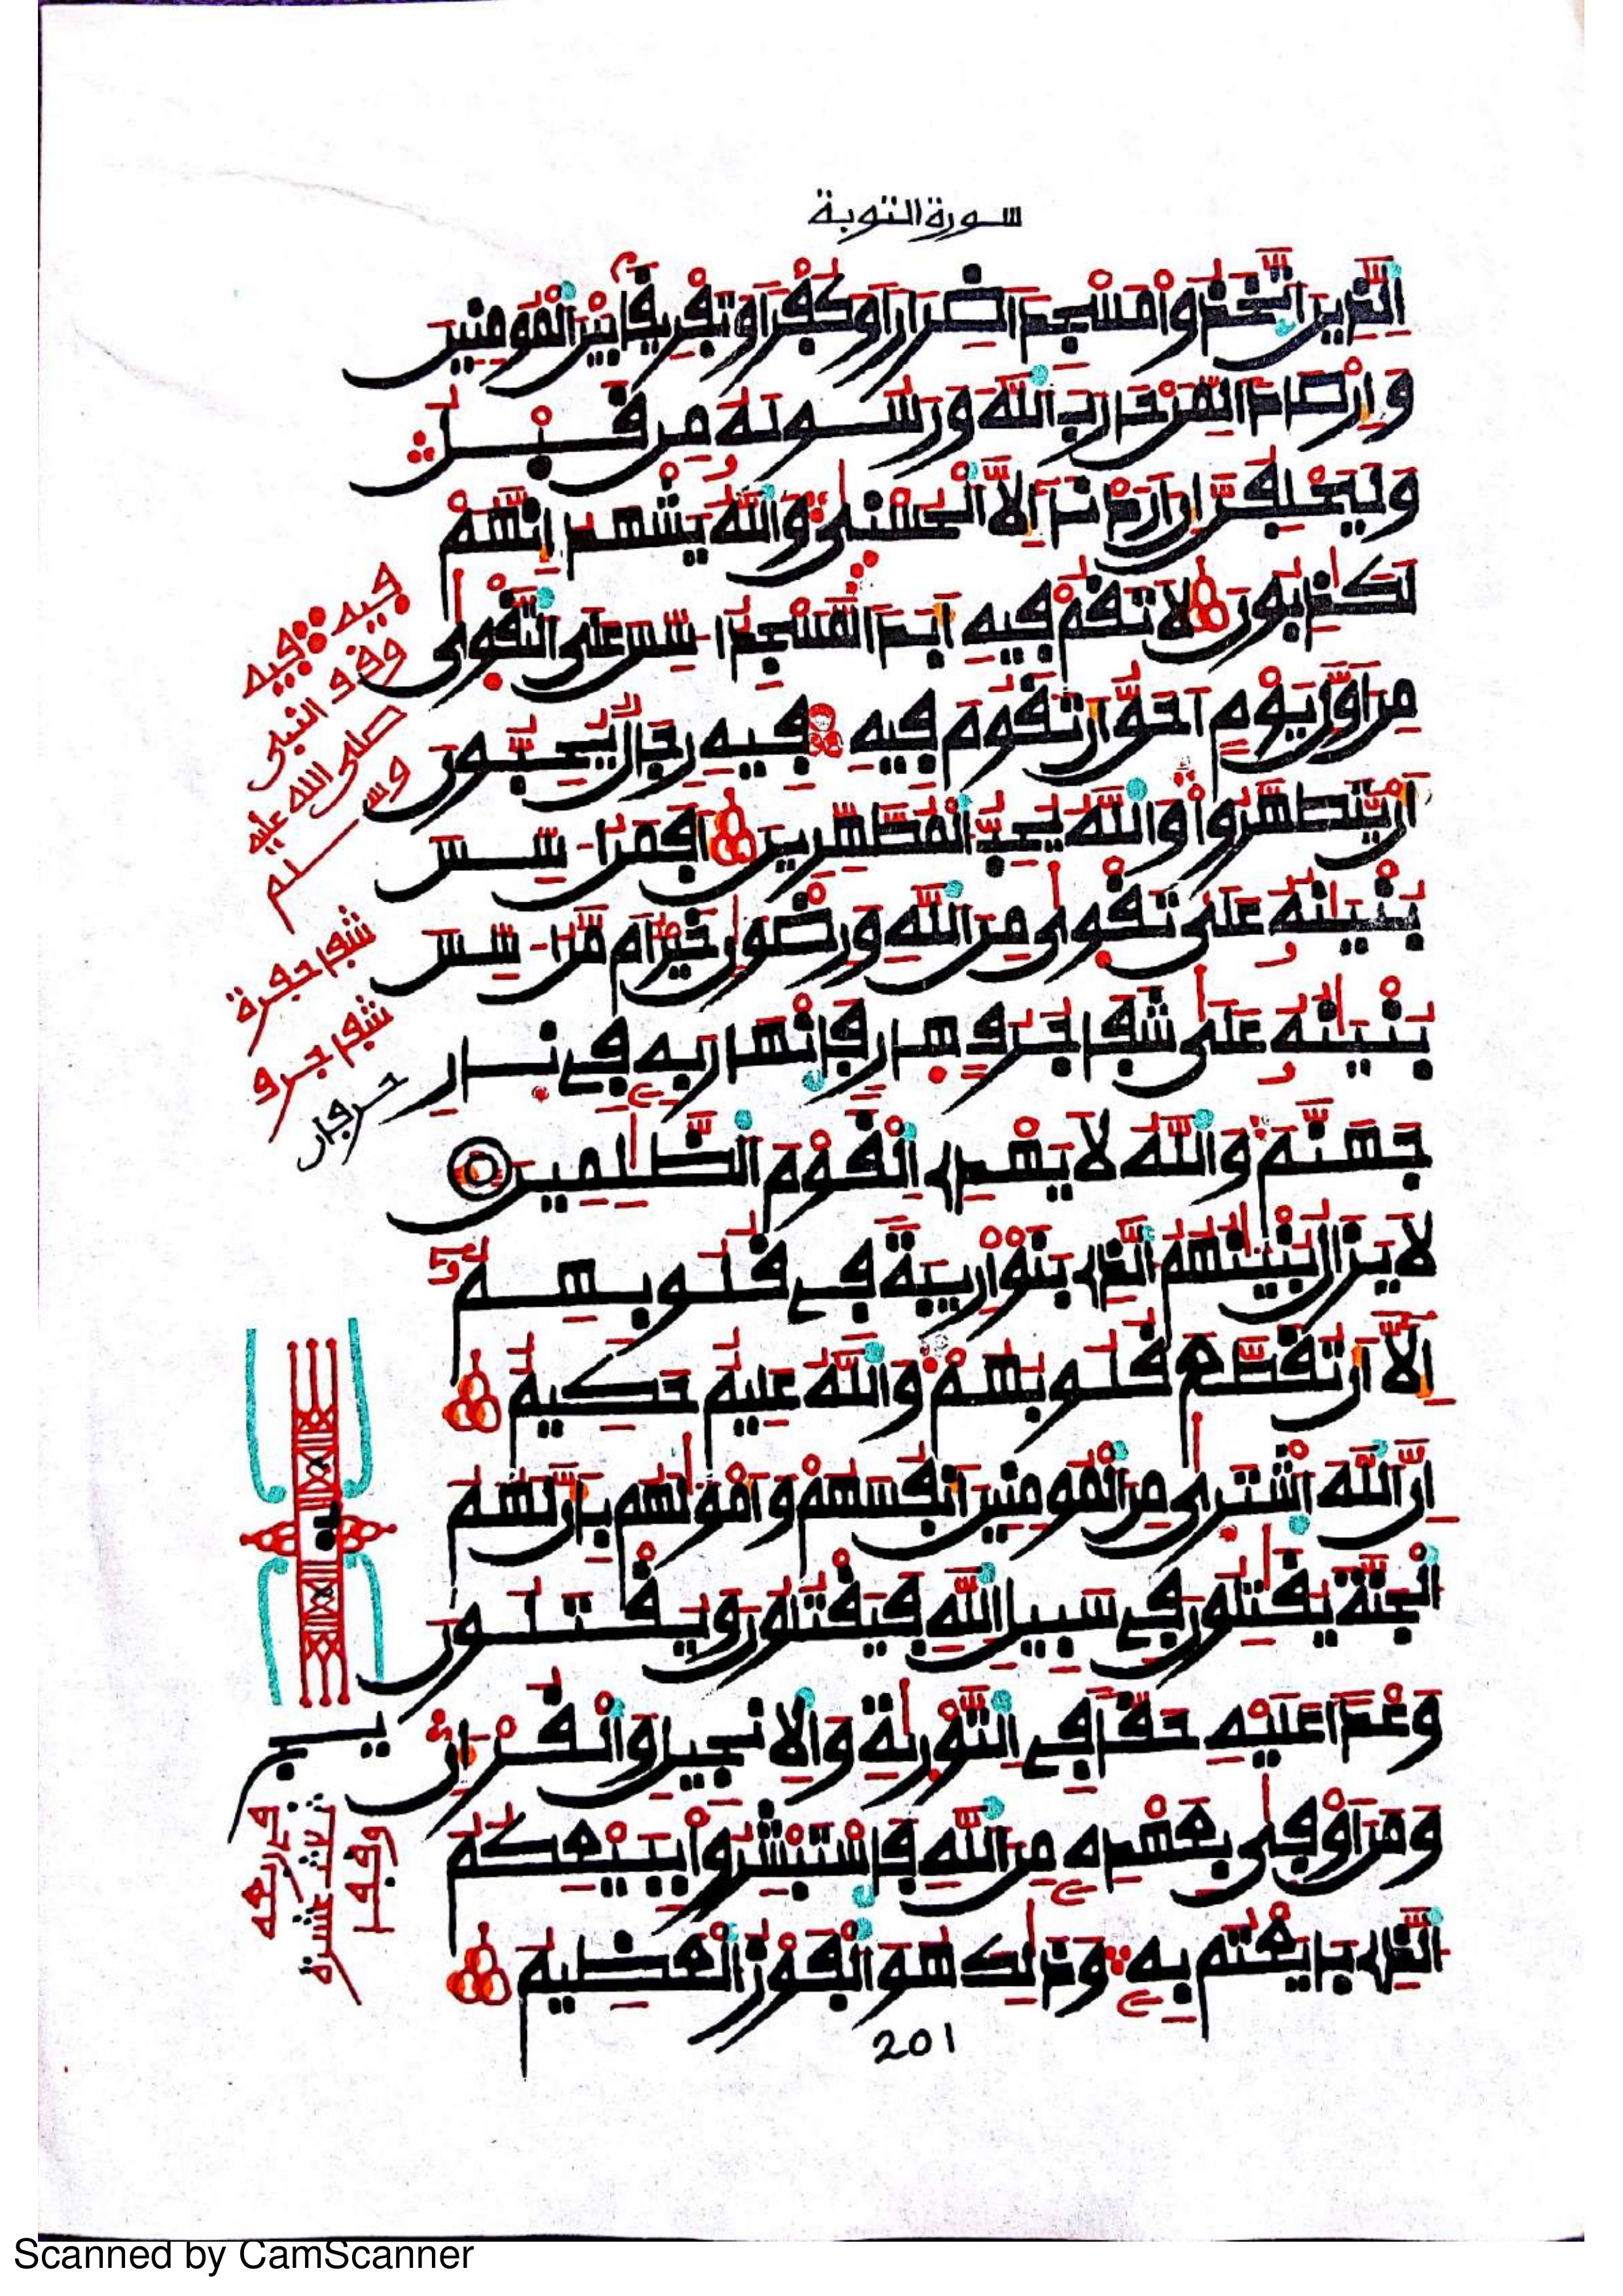 سورة التوبة
الذين اتخذوا مسجدا ضرارا وكفرا وتفريقا بين المومنين
وإرصادا لمن حارب الله ورسوله من قبل
وليحلفن إن أردنا إلا الحسنى والله يشهد إنهم
لكذبون لا تقم فيه أبدا لمسجد اسس على التقوى
من أول يوم احق أن تقوم فيه فيه رجال يحبون
أن يتطهروا والله يحب المطهرين افمن اسس
بنينه على تقوى من الله ورضون خير ام من اسس
بنينه على شفا جرف هار فانهار به في نار
جهنم والله لا يهدي القوم الظلمين
لا يزال بنينهم الذي بنوا ريبة في قلوبهم
إلا أن تقطع قلوبهم والله عليم حكيم
إن الله اشترى من المومنين أنفسهم وأمولهم بأن لهم
الجنة يقتلون في سبيل الله فيقتلون ويقتلون
وعدا عليه حقا في التورية والانجيل والقران
ومن اوفى بعهده من الله فاستبشروا ببيعكم
الذي بايعتم به وذلك هو الفوز العظيم
201
فيه فيه
وقف النبي
صلى الله عليه
وسلم
شفا حفرة
شفا جرف
Scanned by CamScanner